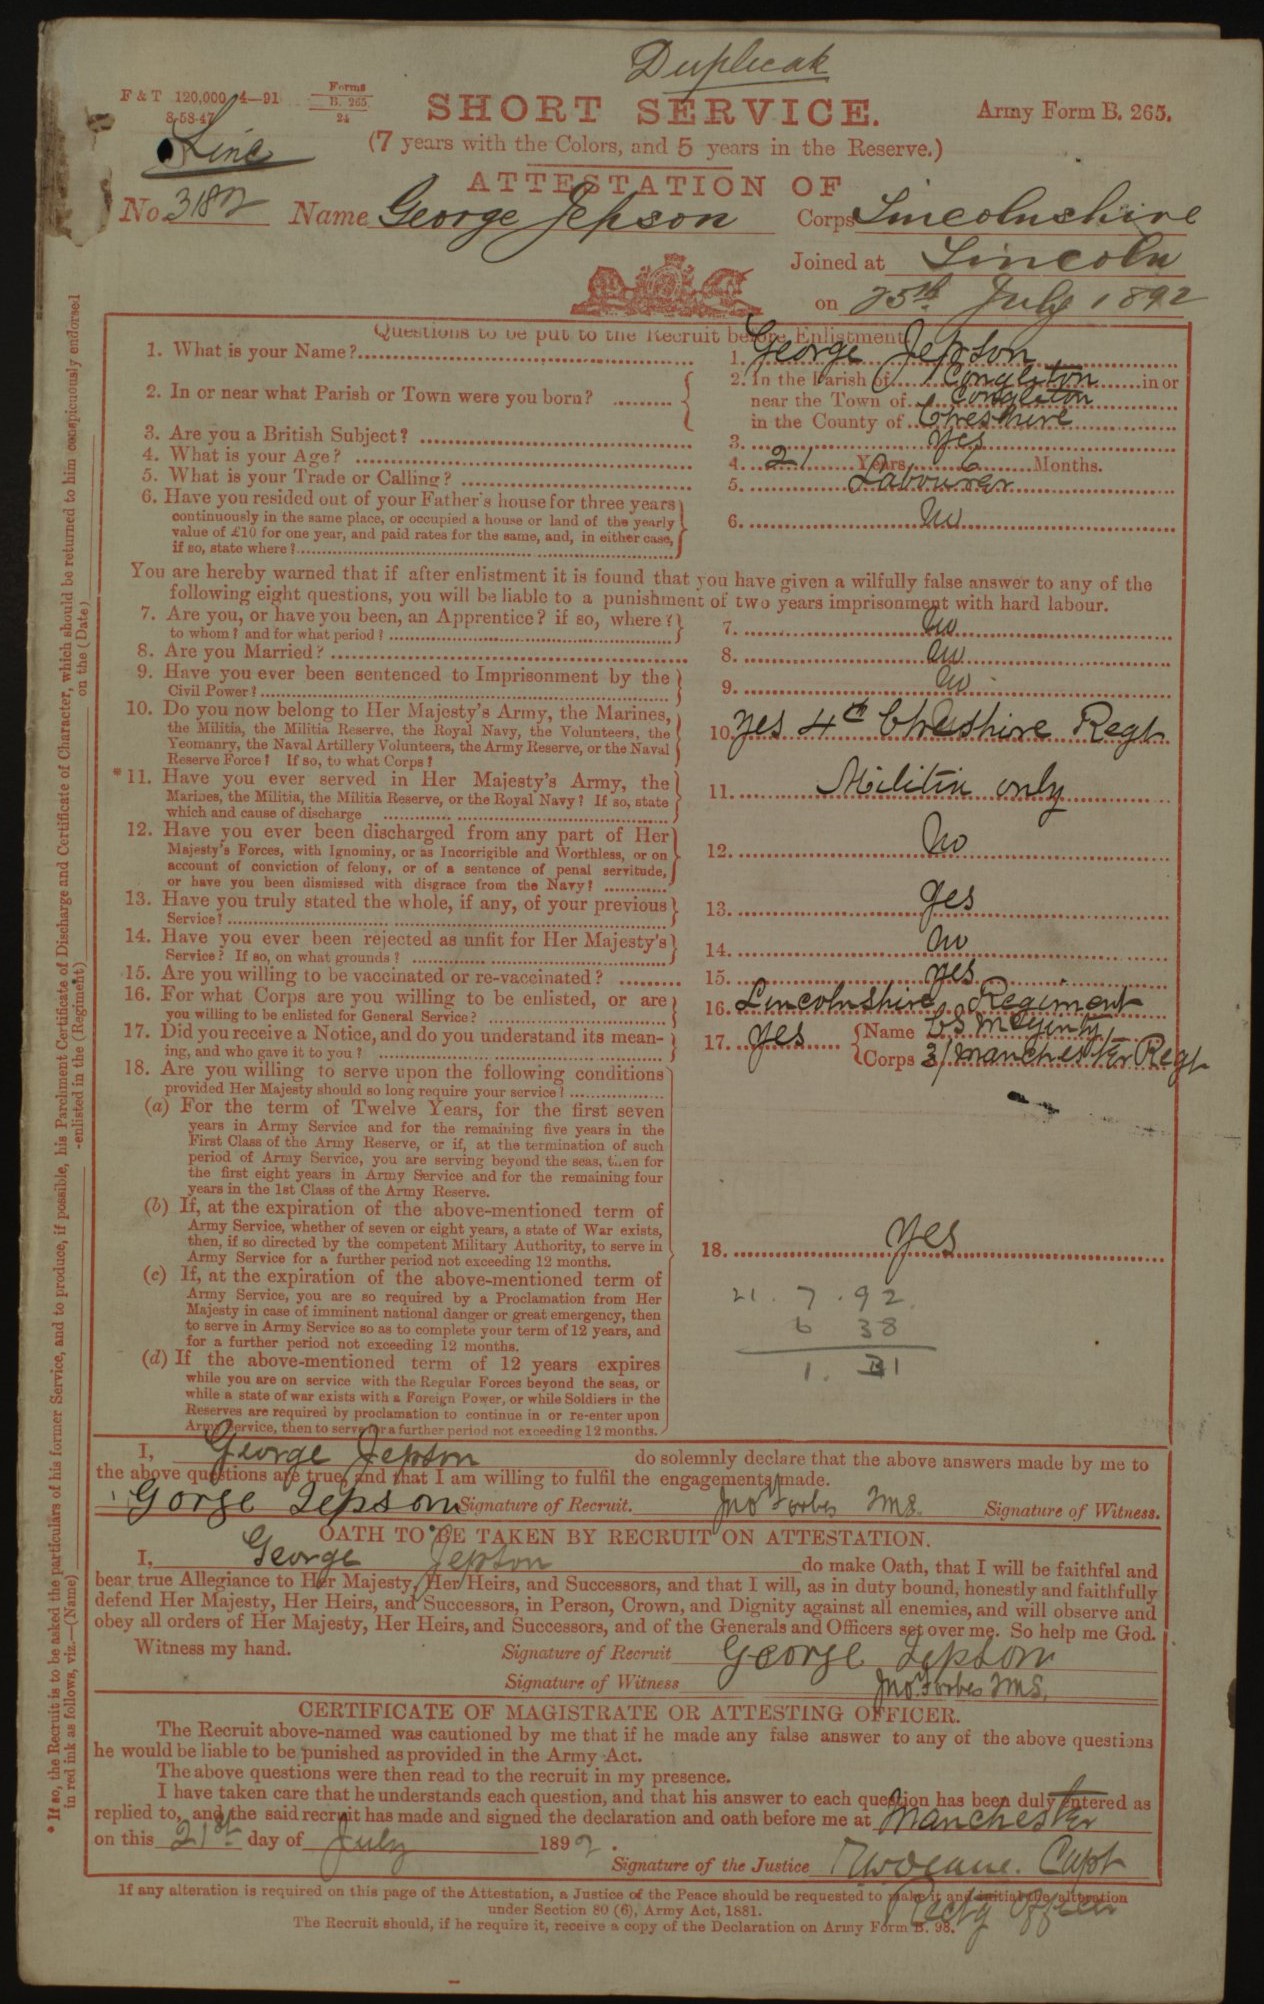 Duplicate
F & T 120,000 4—91 Forms B. 265 24
8-58-47
SHORT SERVICE. Army Form B. 265.
Line
(7 years with the Colors, and 5 years in the Reserve.)
ATTESTATION OF
No 3182 Name George Jepson Corps Lincolnshire
Joined at Lincoln
on 25th July 1892
Questions to be put to the Recruit before Enlistment
1. What is your Name? 1. George Jepson
2. In or near what Parish or Town were you born? 2. In the Parish of Congleton in or
near the Town of Congleton
in the County of Cheshire
3. Are you a British Subject? 3. yes
4. What is your Age? 4. 21 Years 6 Months.
5. What is your Trade or Calling? 5. Labourer
6. Have you resided out of your Father's house for three years
continuously in the same place, or occupied a house or land of the yearly
value of £10 for one year, and paid rates for the same, and, in either case,
if so, state where? 6. No
You are hereby warned that if after enlistment it is found that you have given a wilfully false answer to any of the
following eight questions, you will be liable to a punishment of two years imprisonment with hard labour.
7. Are you, or have you been, an Apprentice? if so, where?
to whom? and for what period? 7. No
8. Are you Married? 8. No
9. Have you ever been sentenced to Imprisonment by the
Civil Power? 9. No
10. Do you now belong to Her Majesty's Army, the Marines,
the Militia, the Militia Reserve, the Royal Navy, the Volunteers, the
Yeomanry, the Naval Artillery Volunteers, the Army Reserve, or the Naval
Reserve Force? If so, to what Corps? 10. yes 4th Cheshire Regt
*11. Have you ever served in Her Majesty's Army, the
Marines, the Militia, the Militia Reserve, or the Royal Navy? If so, state
which and cause of discharge 11. Militia only
12. Have you ever been discharged from any part of Her
Majesty's Forces, with Ignominy, or as Incorrigible and Worthless, or on
account of conviction of felony, or of a sentence of penal servitude,
or have you been dismissed with disgrace from the Navy? 12. No
13. Have you truly stated the whole, if any, of your previous
Service? 13. yes
14. Have you ever been rejected as unfit for Her Majesty's
Service? If so, on what grounds? 14. No
15. Are you willing to be vaccinated or re-vaccinated? 15. yes
16. For what Corps are you willing to be enlisted, or are
you willing to be enlisted for General Service? 16. Lincolnshire Regiment
17. Did you receive a Notice, and do you understand its mean-
ing, and who gave it to you? 17. yes Name CS McGinty
Corps 3/Manchester Regt
18. Are you willing to serve upon the following conditions
provided Her Majesty should so long require your service?
(a) For the term of Twelve Years, for the first seven
years in Army Service and for the remaining five years in the
First Class of the Army Reserve, or if, at the termination of such
period of Army Service, you are serving beyond the seas, then for
the first eight years in Army Service and for the remaining four
years in the 1st Class of the Army Reserve.
(b) If, at the expiration of the above-mentioned term of
Army Service, whether of seven or eight years, a state of War exists,
then, if so directed by the competent Military Authority, to serve in
Army Service for a further period not exceeding 12 months.
18. yes
(c) If, at the expiration of the above-mentioned term of
Army Service, you are so required by a Proclamation from Her
Majesty in case of imminent national danger or great emergency, then
to serve in Army Service so as to complete your term of 12 years, and
for a further period not exceeding 12 months.
21 . 7 . 92
6 38
1.
(d) If the above-mentioned term of 12 years expires
while you are on service with the Regular Forces beyond the seas, or
while a state of war exists with a Foreign Power, or while Soldiers in the
Reserves are required by proclamation to continue in or re-enter upon
Army Service, then to serve for a further period not exceeding 12 months.
I, George Jepson do solemnly declare that the above answers made by me to
the above questions are true, and that I am willing to fulfil the engagements made.
Gorge Jepson Signature of Recruit. Jno Forbes Signature of Witness.
OATH TO BE TAKEN BY RECRUIT ON ATTESTATION.
I, George Jepson do make Oath, that I will be faithful and
bear true Allegiance to Her Majesty, Her Heirs, and Successors, and that I will, as in duty bound, honestly and faithfully
defend Her Majesty, Her Heirs, and Successors, in Person, Crown, and Dignity against all enemies, and will observe and
obey all orders of Her Majesty, Her Heirs, and Successors, and of the Generals and Officers set over me. So help me God.
Witness my hand. Signature of Recruit George Jepson
Signature of Witness Jno Forbes
CERTIFICATE OF MAGISTRATE OR ATTESTING OFFICER.
The Recruit above-named was cautioned by me that if he made any false answer to any of the above questions
he would be liable to be punished as provided in the Army Act.
The above questions were then read to the recruit in my presence.
I have taken care that he understands each question, and that his answer to each question has been duly entered as
replied to, and the said recruit has made and signed the declaration and oath before me at Manchester
on this 21st day of July 1892.
Signature of the Justice Capt
Rectg Officer
If any alteration is required on this page of the Attestation, a Justice of the Peace should be requested to make it and initial the alteration
under Section 80 (6), Army Act, 1881.
The Recruit should, if he require it, receive a copy of the Declaration on Army Form B. 98.
* If so, the Recruit is to be asked the particulars of his former Service, and to produce, if possible, his Parchment Certificate of Discharge and Certificate of Character, which should be returned to him conspicuously endorsed
in red ink as follows, viz.—(Name) -enlisted in the (Regiment) on the (Date)